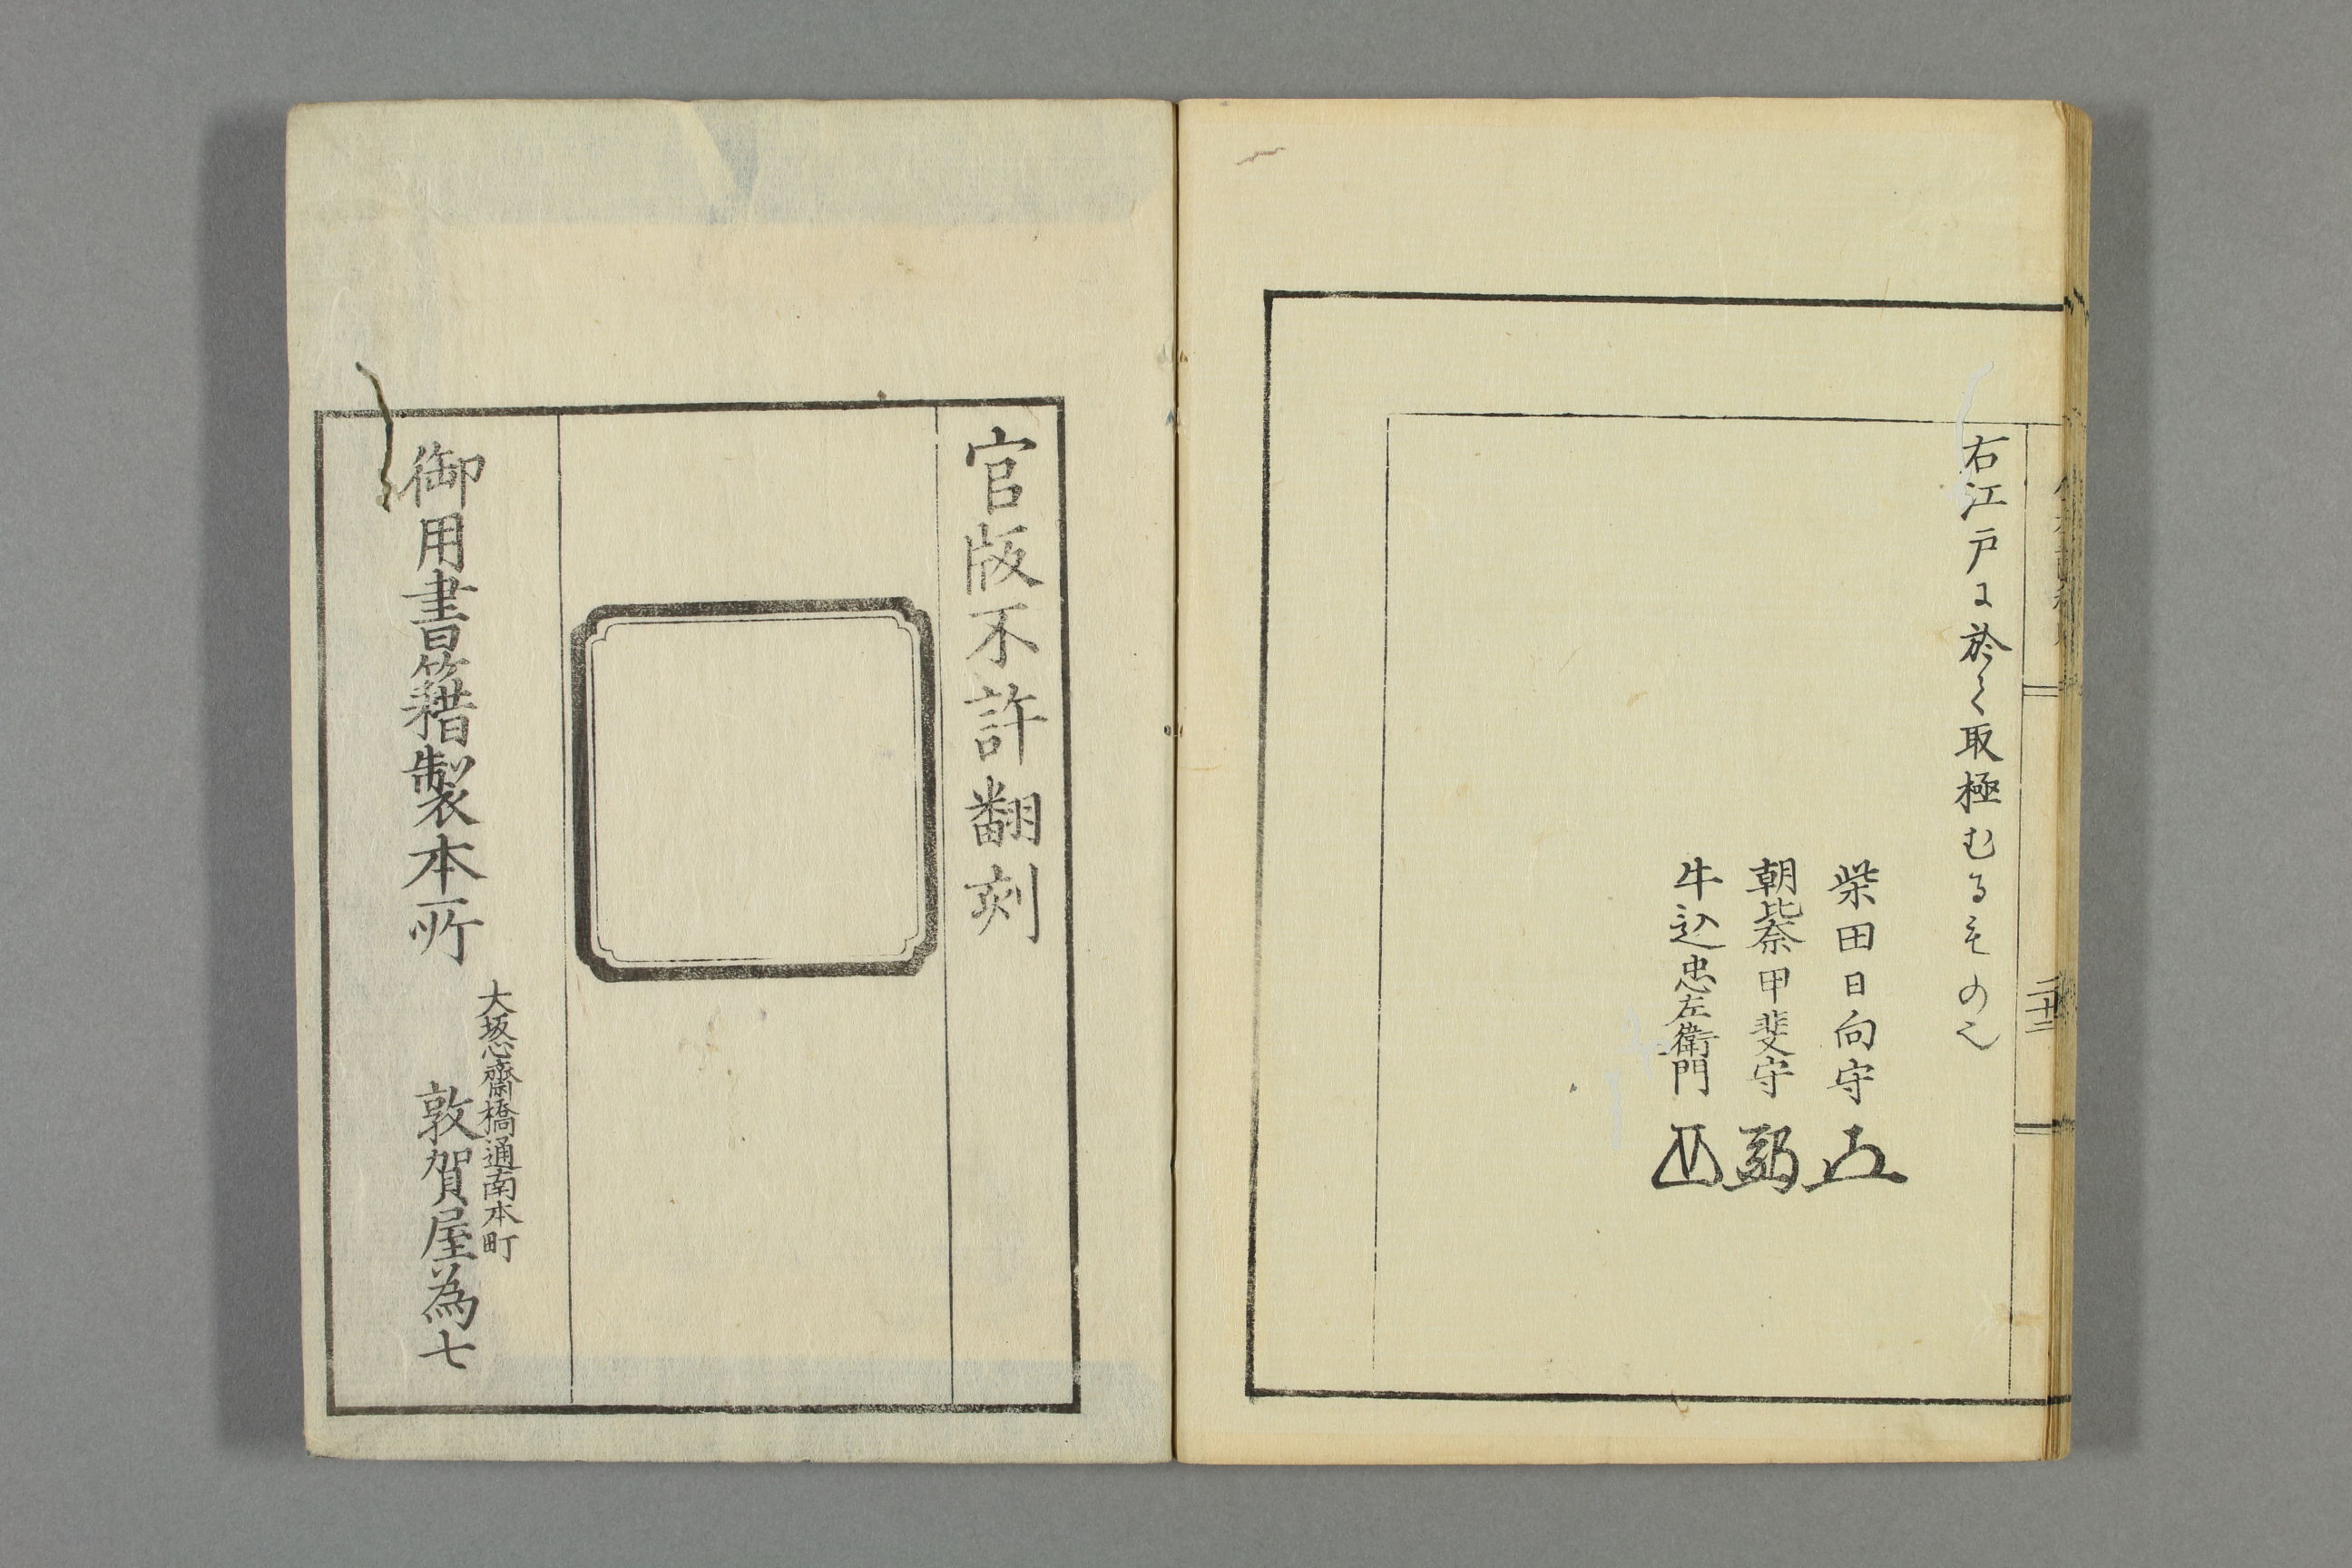 右江戸に於て取極むるもの也
柴田日向守
朝比奈甲斐守
牛込忠左衛門
二十二
官版不許翻刻
御用書籍製本所
大坂心齋橋通南本町
敦賀屋為七